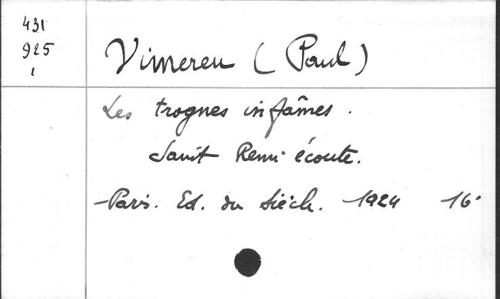 431
925
1
Vimereu (Paul)
Les trognes infâmes.
Saint Remi écoute.
Paris. Ed. du Siècle. 1924 16°